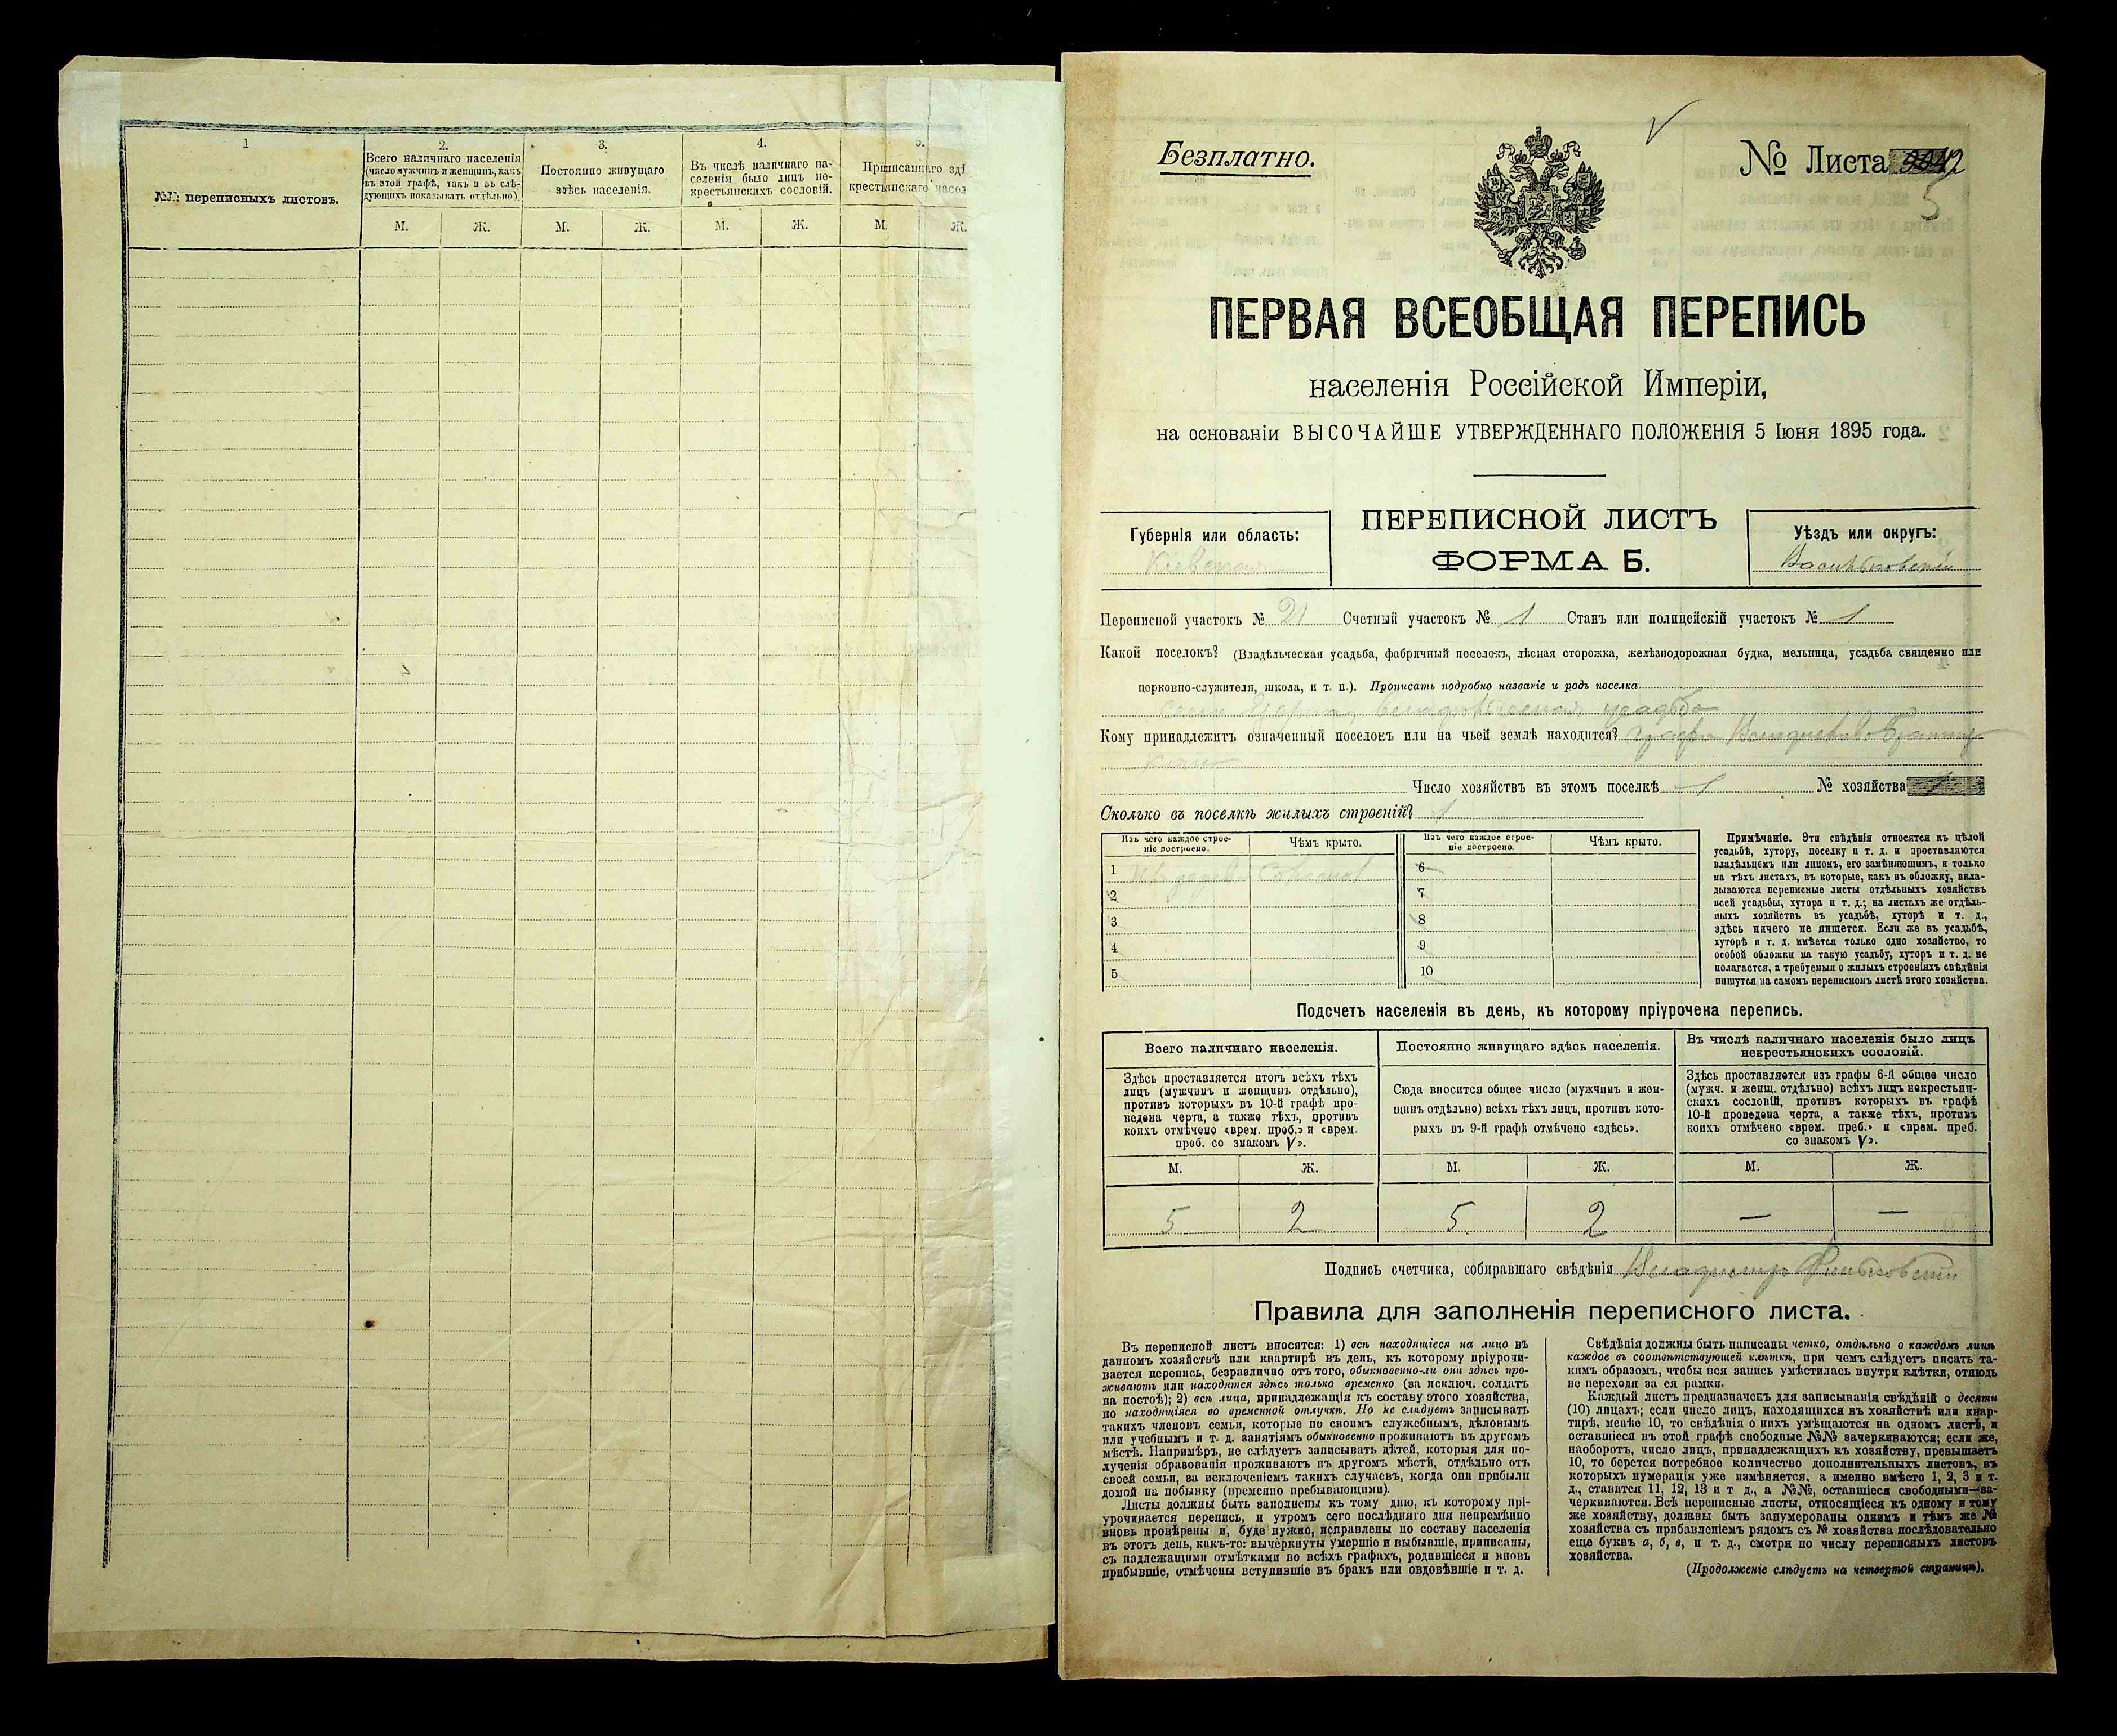 1
2.
3.
4.
5.
№№ переписныхъ листовъ.
Всего наличнаго населенія
(число мужчинъ и женщинъ, какъ
въ этой графѣ, такъ и въ слѣ-
дующихъ показывать отдѣльно)
Постоянно живущаго
здѣсь населенія.
Въ числѣ наличнаго на-
селенія было лицъ не-
крестьянскихъ сословій.
Приписаннаго
крестьянскаго
М. Ж. М. Ж. М. Ж. М. Ж.
Безплатно.
№ Листа 2
5
ПЕРВАЯ ВСЕОБЩАЯ ПЕРЕПИСЬ
населенія Россійской Имперіи,
на основаніи ВЫСОЧАЙШЕ УТВЕРЖДЕННАГО ПОЛОЖЕНІЯ 5 Іюня 1895 года.
Губернія или область:
Кіевская
ПЕРЕПИСНОЙ ЛИСТЪ
ФОРМА Б.
Уѣздъ или округъ:
Васильковскій
Переписной участокъ № 21 Счетный участокъ № 1 Станъ или полицейскій участокъ № 1
Какой поселокъ? (Владѣльческая усадьба, фабричный поселокъ, лѣсная сторожка, желѣзнодорожная будка, мельница, усадьба священно или
церковно-служителя, школа, и т. п.). Прописать подробно названіе и родъ поселка
усадьба
Кому принадлежитъ означенный поселокъ или на чьей землѣ находится? графа
Число хозяйствъ въ этомъ поселкѣ 1 № хозяйства
Сколько въ поселкѣ жилыхъ строеній? 1
Изъ чего каждое строе-
ніе построено.
Чѣмъ крыто.
Изъ чего каждое строе-
ніе построено.
Чѣмъ крыто.
1 изъ дерева соломой
2
3
4
5
6
7
8
9
10
Примѣчаніе. Эти свѣдѣнія относятся къ цѣлой
усадьбѣ, хутору, поселку и т. д. и проставляются
владѣльцемъ или лицомъ, его замѣняющимъ, и только
на тѣхъ листахъ, въ которые, какъ въ обложку, вкла-
дываются переписные листы отдѣльныхъ хозяйствъ
всей усадьбы, хутора и т. д.; на листахъ же отдѣль-
ныхъ хозяйствъ въ усадьбѣ, хуторѣ и т. д.,
здѣсь ничего не пишется. Если же въ усадьбѣ,
хуторѣ и т. д. имѣется только одно хозяйство, то
особой обложки на такую усадьбу, хуторъ и т. д. не
полагается, а требуемыя о жилыхъ строеніяхъ свѣдѣнія
пишутся на самомъ переписномъ листѣ этого хозяйства.
Подсчетъ населенія въ день, къ которому пріурочена перепись.
Всего наличнаго населенія.
Здѣсь проставляется итогъ всѣхъ тѣхъ
лицъ (мужчинъ и женщинъ отдѣльно),
противъ которыхъ въ 10-й графѣ про-
ведена черта, а также тѣхъ, противъ
коихъ отмѣчено «врем. преб.» и «врем.
преб. со знакомъ V».
Постоянно живущаго здѣсь населенія.
Сюда вносится общее число (мужчинъ и жен-
щинъ отдѣльно) всѣхъ тѣхъ лицъ, противъ кото-
рыхъ въ 9-й графѣ отмѣчено «здѣсь».
Въ числѣ наличнаго населенія было лицъ
некрестьянскихъ сословій.
Здѣсь проставляется изъ графы 6-й общее число
(мужч. и женщ. отдѣльно) всѣхъ лицъ некрестьян-
скихъ сословій, противъ которыхъ въ графѣ
10-й проведена черта, а также тѣхъ, противъ
коихъ отмѣчено «врем. преб.» и «врем. преб.
со знакомъ V».
М. Ж. М. Ж. М. Ж.
5 2 5 2 — —
Подпись счетчика, собиравшаго свѣдѣнія Владимир
Правила для заполненія переписного листа.
Въ переписной листъ вносятся: 1) всѣ находящіеся на лицо въ
данномъ хозяйствѣ или квартирѣ въ день, къ которому пріурочи-
вается перепись, безразлично отъ того, обыкновенно-ли они здѣсь про-
живаютъ или находятся здѣсь только временно (за исключ. солдатъ
на постоѣ); 2) всѣ лица, принадлежащія къ составу этого хозяйства,
но находящіяся во временной отлучкѣ. Но не слѣдуетъ записывать
такихъ членовъ семьи, которые по своимъ служебнымъ, дѣловымъ
или учебнымъ и т. д. занятіямъ обыкновенно проживаютъ въ другомъ
мѣстѣ. Напримѣръ, не слѣдуетъ записывать дѣтей, которыя для по-
лученія образованія проживаютъ въ другомъ мѣстѣ, отдѣльно отъ
своей семьи, за исключеніемъ такихъ случаевъ, когда они прибыли
домой на побывку (временно пребывающими).
Листы должны быть заполнены къ тому дню, къ которому прі-
урочивается перепись, и утромъ сего послѣдняго дня непремѣнно
вновь провѣрены и, буде нужно, исправлены по составу населенія
въ этотъ день, какъ-то: вычеркнуты умершіе и выбывшіе, приписаны,
съ надлежащими отмѣтками во всѣхъ графахъ, родившіеся и вновь
прибывшіе, отмѣчены вступившіе въ бракъ или овдовѣвшіе и т. д.
Свѣдѣнія должны быть написаны четко, отдѣльно о каждомъ лицѣ
каждое въ соотвѣтствующей клѣткѣ, при чемъ слѣдуетъ писать та-
кимъ образомъ, чтобы вся запись умѣстилась внутри клѣтки, отнюдь
не переходя за ея рамки.
Каждый листъ предназначенъ для записыванія свѣдѣній о десяти
(10) лицахъ; если число лицъ, находящихся въ хозяйствѣ или квар-
тирѣ, менѣе 10, то свѣдѣнія о нихъ умѣщаются на одномъ листѣ, и
оставшіеся въ этой графѣ свободные №№ зачеркиваются; если же,
наоборотъ, число лицъ, принадлежащихъ къ хозяйству, превышаетъ
10, то берется потребное количество дополнительныхъ листовъ, въ
которыхъ нумерація уже измѣняется, а именно вмѣсто 1, 2, 3 и т.
д., ставится 11, 12, 13 и т д., а №№, оставшіеся свободными—за-
черкиваются. Всѣ переписные листы, относящіеся къ одному и тому
же хозяйству, должны быть занумерованы однимъ и тѣмъ же №
хозяйства съ прибавленіемъ рядомъ съ № хозяйства послѣдовательно
еще буквъ а, б, в, и т. д., смотря по числу переписныхъ листовъ
хозяйства.
(Продолженіе слѣдуетъ на четвертой страницѣ).